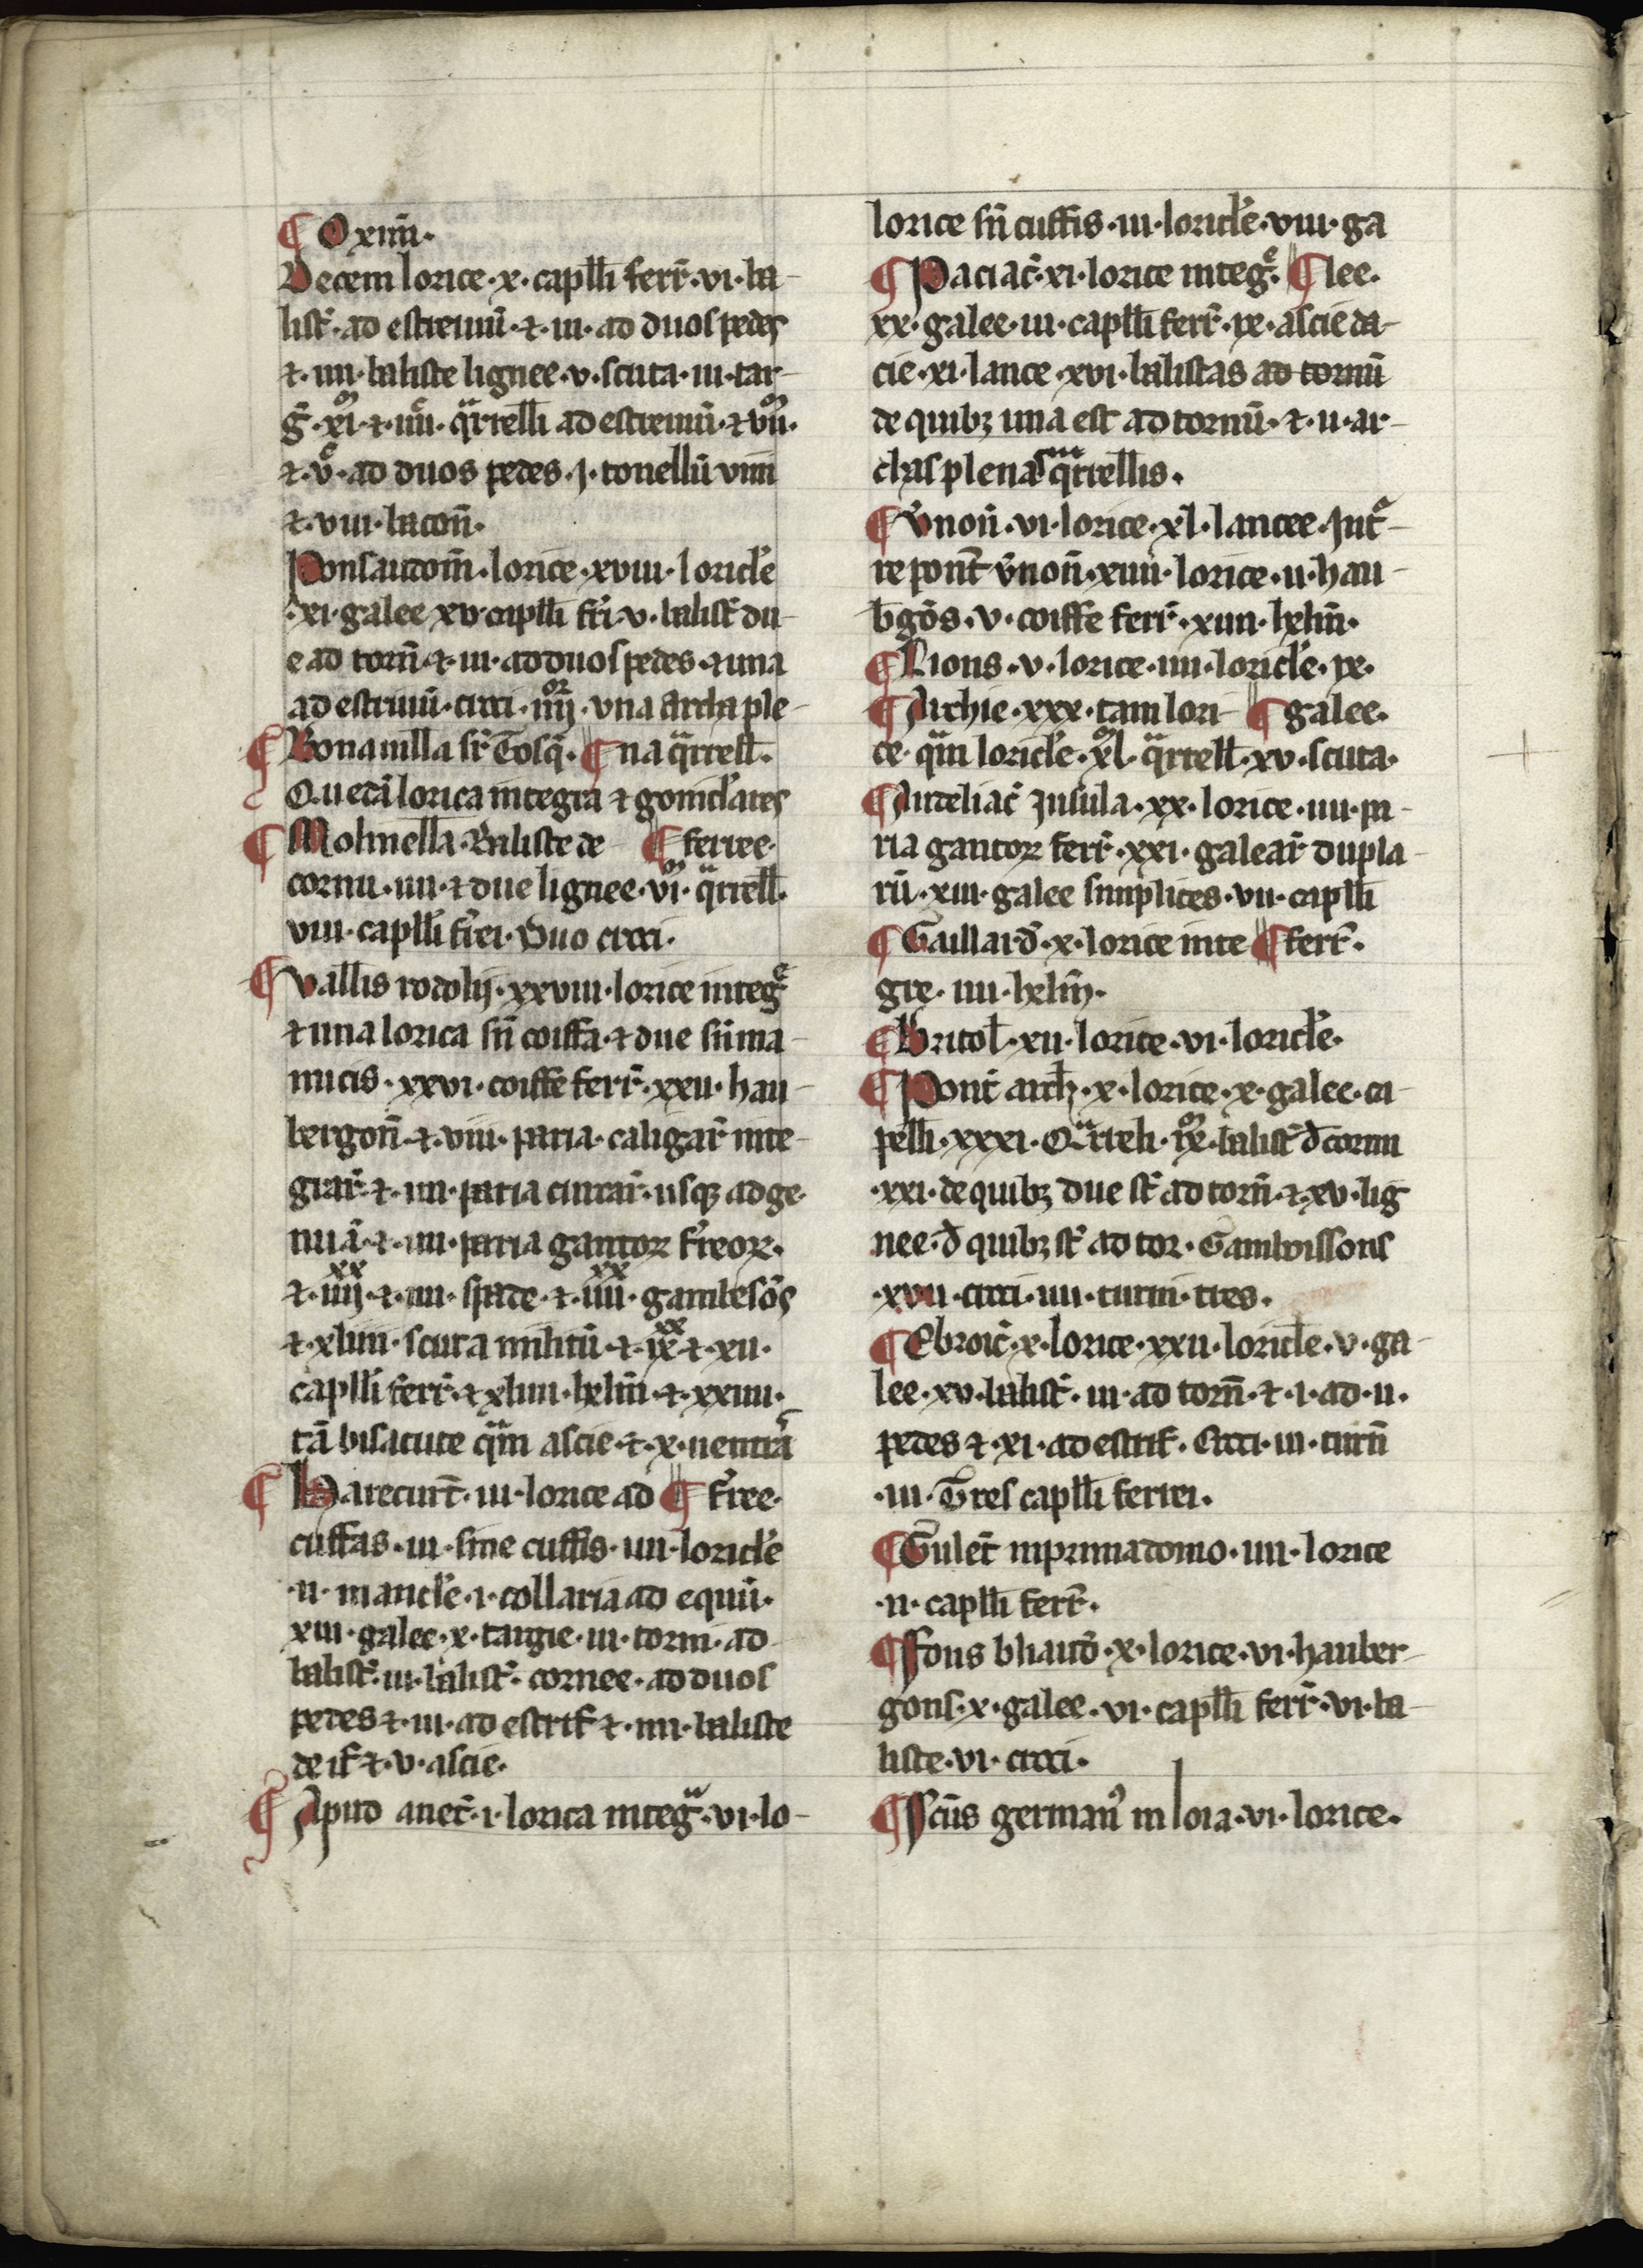 ¶ Oximi.
Decem lorice .x. capll̄i ferr̄ .vi. ba-
list̄. ad estreuiū. ⁊ .iii. ad duos pedes
⁊ .iiii. baliste lignee .v. scuta .iii. tar-
g̃ .xiᵐ. ⁊ .iiiiᶜ. qͣrrelli ad estreuiū. ⁊ viiᵐ.
⁊ .vᶜ. ad duos pedes .j. tonellū vini
⁊ .viii. bacon̄.
Ponsaudom̄. lorice .xviii. loricl'e
.xi. galee xv capll̄i fr̄i .v. balist̄ du-
e ad torn̄ ⁊ .iii. ad duos pedes. ⁊ una
ad estriuiū. croci .iiijᵒʳ. vna archa ple-
¶ Bonauilla sr̄ Tosq̄. ¶ na qͣrrell̄.
Quedā lorica integra ⁊ gonicl'ares
¶ Molinella. Baliste de ¶ ferree.
cornu .iiii. ⁊ due lignee .viᵐ. qͣrrell̄.
viii. capll̄i fr̄ei. Duo croci.
¶ Vallis rodolij .xxviii. lorice integᵉ
⁊ una lorica sn̄ coiffa. ⁊ due sn̄ ma-
nicis .xxvi. coiffe ferr̄ .xxii. hau-
bergon̄. ⁊ .viii. paria. caligar̄ inte-
grar̄ ⁊ .iiii. paria curtar̄. usqꝫ ad ge-
nua. ⁊ .iiii. paria gantoꝝ fr̄eoꝝ.
⁊ .iiijˣˣ. ⁊ .iiii. spade. ⁊ .iiiiˣˣ. gambesōs
⁊ .xliiii. scuta militū. ⁊ .ixˣˣ. ⁊ .xii.
capll̄i ferr̄. ⁊ xliiii. helm̄. ⁊ .xxiiii.
tā bisacute qͣm ascie. ⁊ .x. uentrā
¶ Harecurt̄. iii. lorice ad ¶ fr̄ee.
cuffas. iii. sine cuffis. iiii. loricl'e
.ii. mancl'e .i. collaria ad equū.
xiii. galee .x. targie. iii. torni. ad
balist̄. iii. balist̄. cornee. ad duos
pedes ⁊ .iii. ad estrif ⁊ .iiii. baliste
de if ⁊ .v. ascie.
¶ Apud anet̄. i. lorica integͣ. vi. lo-
lorice sn̄ cuffis. iii. loricl'e. viii. ga
¶ Paciac̄. xi. lorice integᵉ. ¶ lee.
xx. galee. iii. capll̄i ferr̄. ix. ascie da-
cie. xi. lance. xvi. balistas ad tornū
de quibꝫ una est ad tornū. ⁊ .ii. ar-
chas plenas qͣrrellis.
¶ Vn̄on̄. vi. lorice. xl. lancee. Int̄-
re pont̄ v̄non̄. xiiii. lorice. ii. hau-
b̄gōs. v. coiffe ferr̄. xiiii. helm̄.
¶ Lions. v. lorice. iiii. loricl'e. ix.
¶ Archie. xxx. tam lori- ¶ galee.
ce. qͣm loricl'e. xlᵐ. qͣrrell̄. xv. scuta.
¶ Andeliac̄ Insula. xx. lorice. iiii. pa-
ria gantoꝝ ferr̄. xxi. galear̄ dupla-
rū. xiii. galee simplices. vii. capll̄i
¶ Gaillard̄. x. lorice inte ¶ ferr̄.
gre. iiii. helm̄.
¶ Britol̄. xii. lorice. vi. loricl'e.
¶ Pont̄ arch̄. x. lorice. x. galee. ca-
pell̄i. xxxi. Qͣrreli. ixᵐ. balist̄ d̄ cornu
.xxi. de quibꝫ due st̄ ad torn̄. ⁊ xv. lig
nee. d̄ quibꝫ st̄ ad tor. Gamboissons
.xvii. croci. iiii. turni. tres.
¶ Ebroic̄. x. lorice. xxii. loricl'e. v. ga-
lee. xv. balist̄. iii. ad torn̄. ⁊ .i. ad .ii.
pedes ⁊ .xi. ad estrif. Croci. iii. turn̄
.iii. Tres capll̄i ferrei.
¶ Gulet̄ in prima domo. iiii. lorice
.ii. capll̄i ferr̄.
¶ Fons bliaud̄. x. lorice. vi. hauber-
gons. x. galee. vi. capll̄i ferr̄. vi. ba-
liste. vi. croci.
¶ Scūs germanꝰ in loia. vi. lorice.